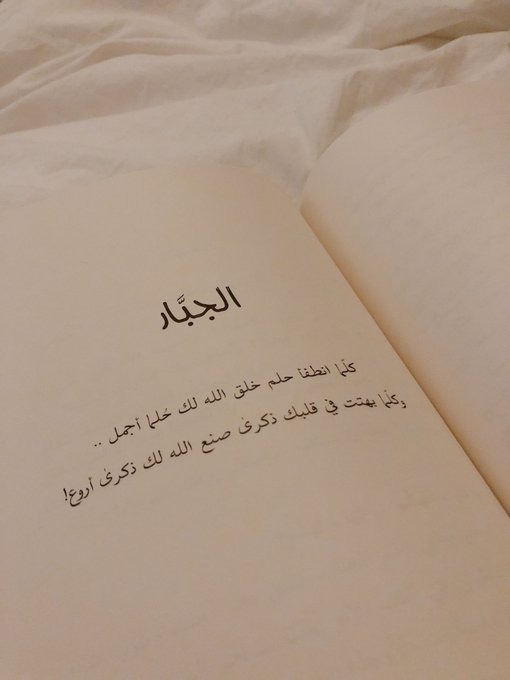 الجبَّار
كلّما انطفأ حلم خلق الله لك حُلما أجمل ..
وكلّما بهتت في قلبك ذكرىٰ صنع الله لك ذكرىٰ أروع!